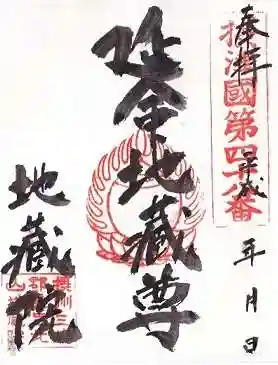 奉拝
摂津國第四十八番
平成 年 月 日
延命地蔵尊
地蔵院